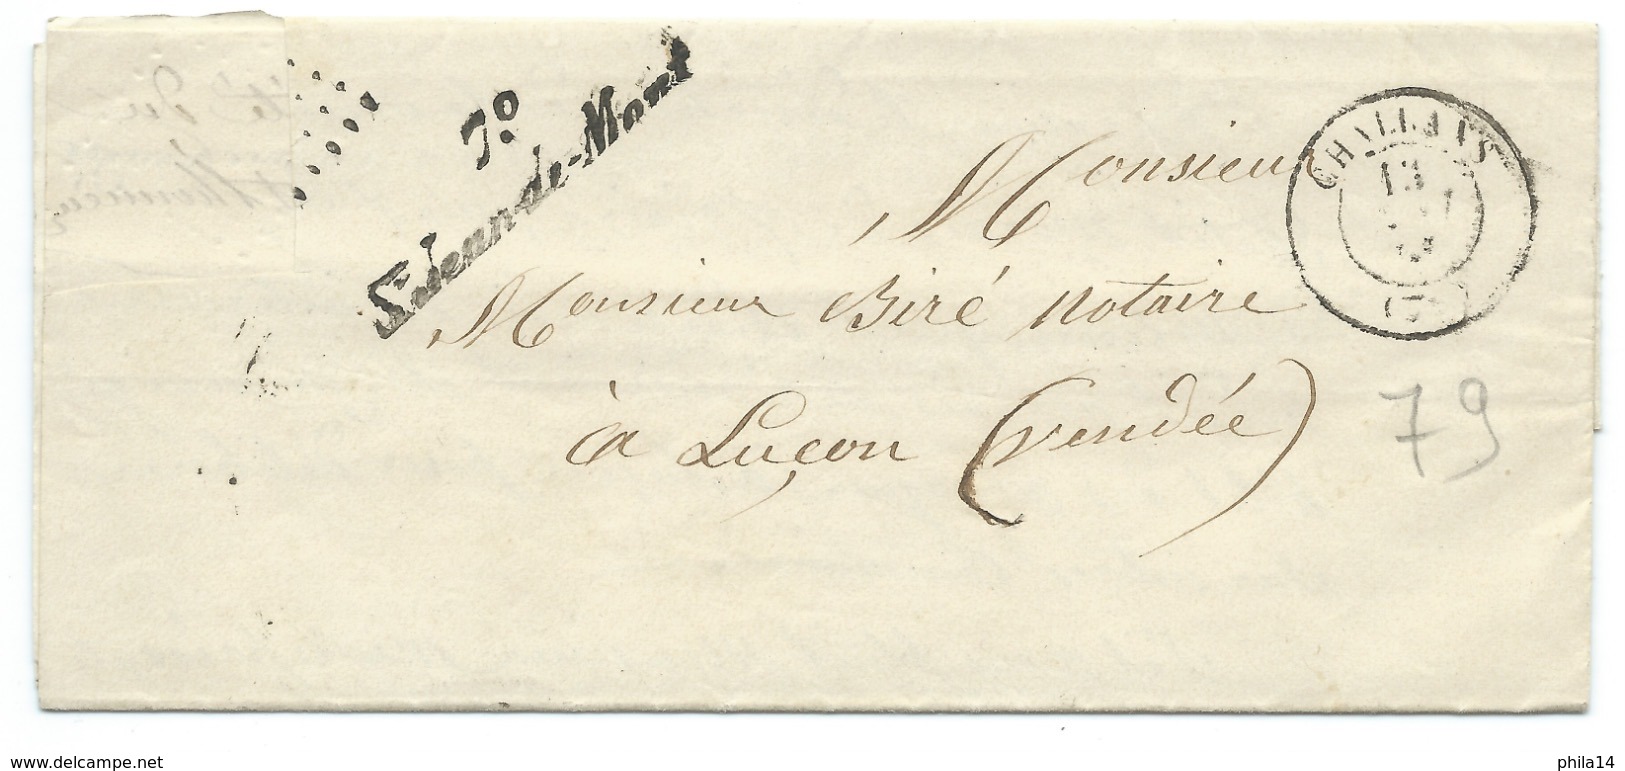 7º
St Jean-de-Mont
CHALLANS
13
Monsieur
Monsieur Biré notaire
à Luçon (vendée)
79
www.delcampe.net
phila14